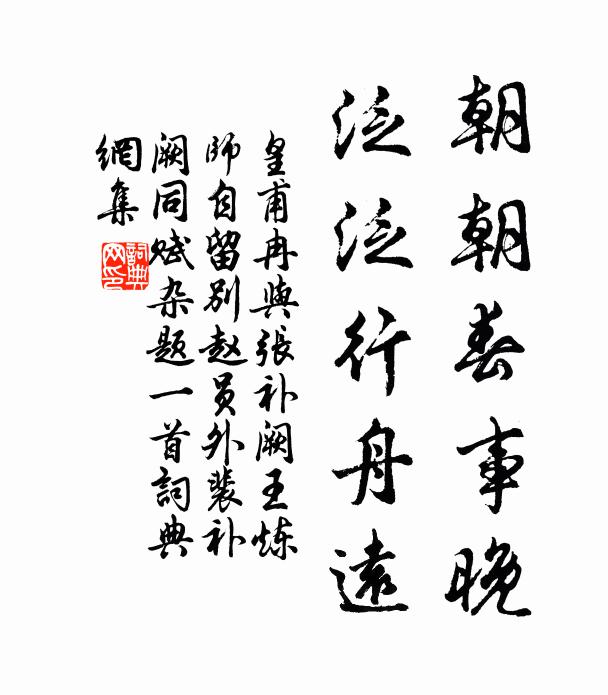 朝朝春事晚
泛泛行舟遠
皇甫冉與張补阙王炼
师自留别赵员外裴补
阙同赋杂题一首詞典
網集
詞典
网印